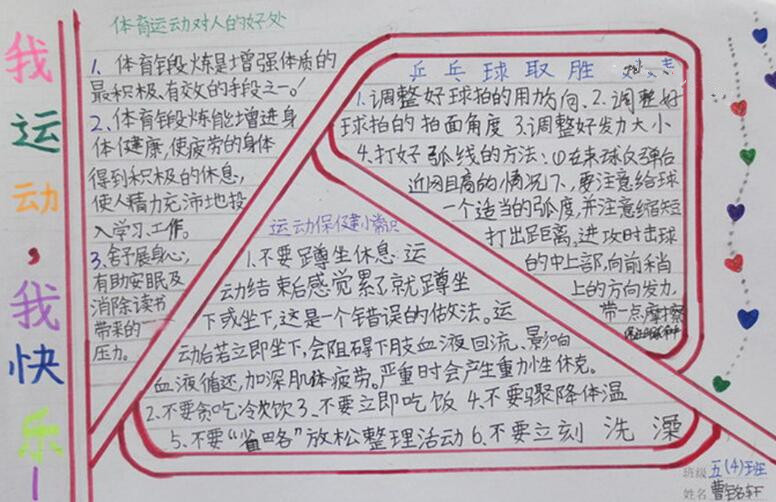 我运动，我快乐！
体育运动对人的好处
1、体育锻炼是增强体质的
最积极、有效的手段之一！
2、体育锻炼能增进身
体健康，使疲劳的身体
得到积极的休息，
使人精力充沛地投
入学习、工作。
3、舒展身心，
有助安眠及
消除读书
带来的
压力。
乒乓球取胜
1、调整好球拍的用力方向、2、调整好
球拍的拍面角度 3、调整好发力大小
4、打好弧线的方法：(1)在来球反弹台
近网且高的情况下，要注意给球
一个适当的弧度，并注意缩短
打出距离，进攻时击球
的中上部，向前稍
上的方向发力，
带一点摩擦
运动保健小常识
1、不要蹲坐休息 运
动结束后感觉累了就蹲坐
下或坐下，这是一个错误的做法。运
动后若立即坐下，会阻碍下肢血液回流、影响
血液循还，加深肌体疲劳。严重时会产生重力性休克。
2、不要贪吃冷饮 3、不要立即吃饭 4、不要骤降体温
5、不要“省略”放松整理活动 6、不要立刻 洗 澡
班级 五(4)班
姓名